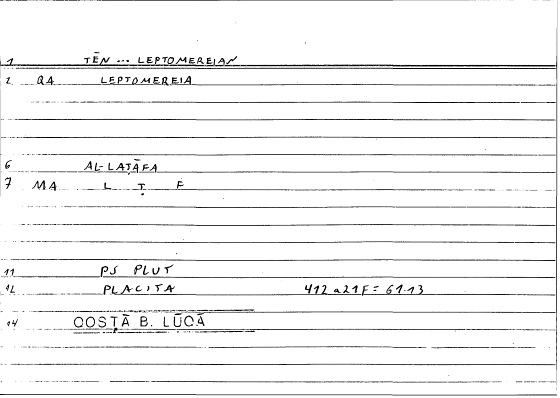 1 TĒN ... LEPTOMEREIAN
2 QA LEPTOMEREIA
6 AL-LAṬĀFA
7 MA L Ṭ F
11 PS PLUT
12 PLACITA 412 a21F = 61.13
14 QOSṬĀ B. LŪQĀ